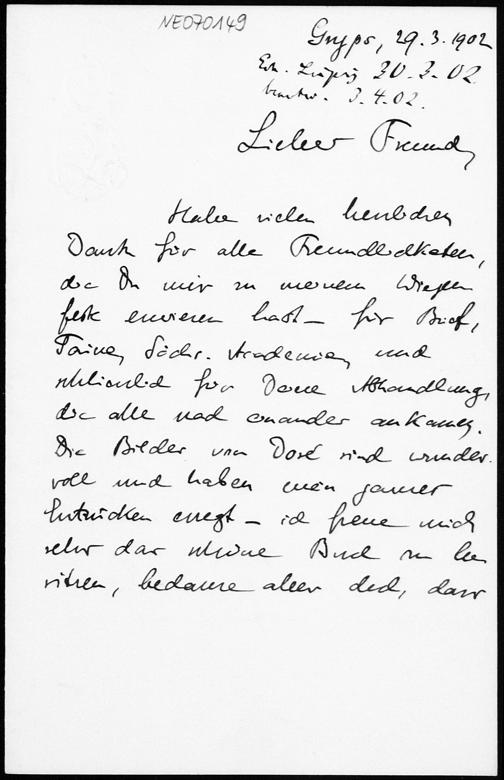 NE070149
Gryps, 29.3.1902
Erh. Leipzig 30.3.02
beantw. 3.4.02.
Lieber Freund,
Habe vielen herzlichen
Dank für alle Freundlichkeiten,
die Du mir zu meinem Wiegen
feste erwiesen hast – für Brief,
Taine, Sächs. Academien, und
schliesslich für Deine Abhandlung,
die alle nach einander ankamen.
Die Bilder von Doré sind wunder-
voll und haben mein ganzes
Entzücken erregt – ich freue mich
sehr das schöne Buch zu be
sitzen, bedaure aber doch, dass